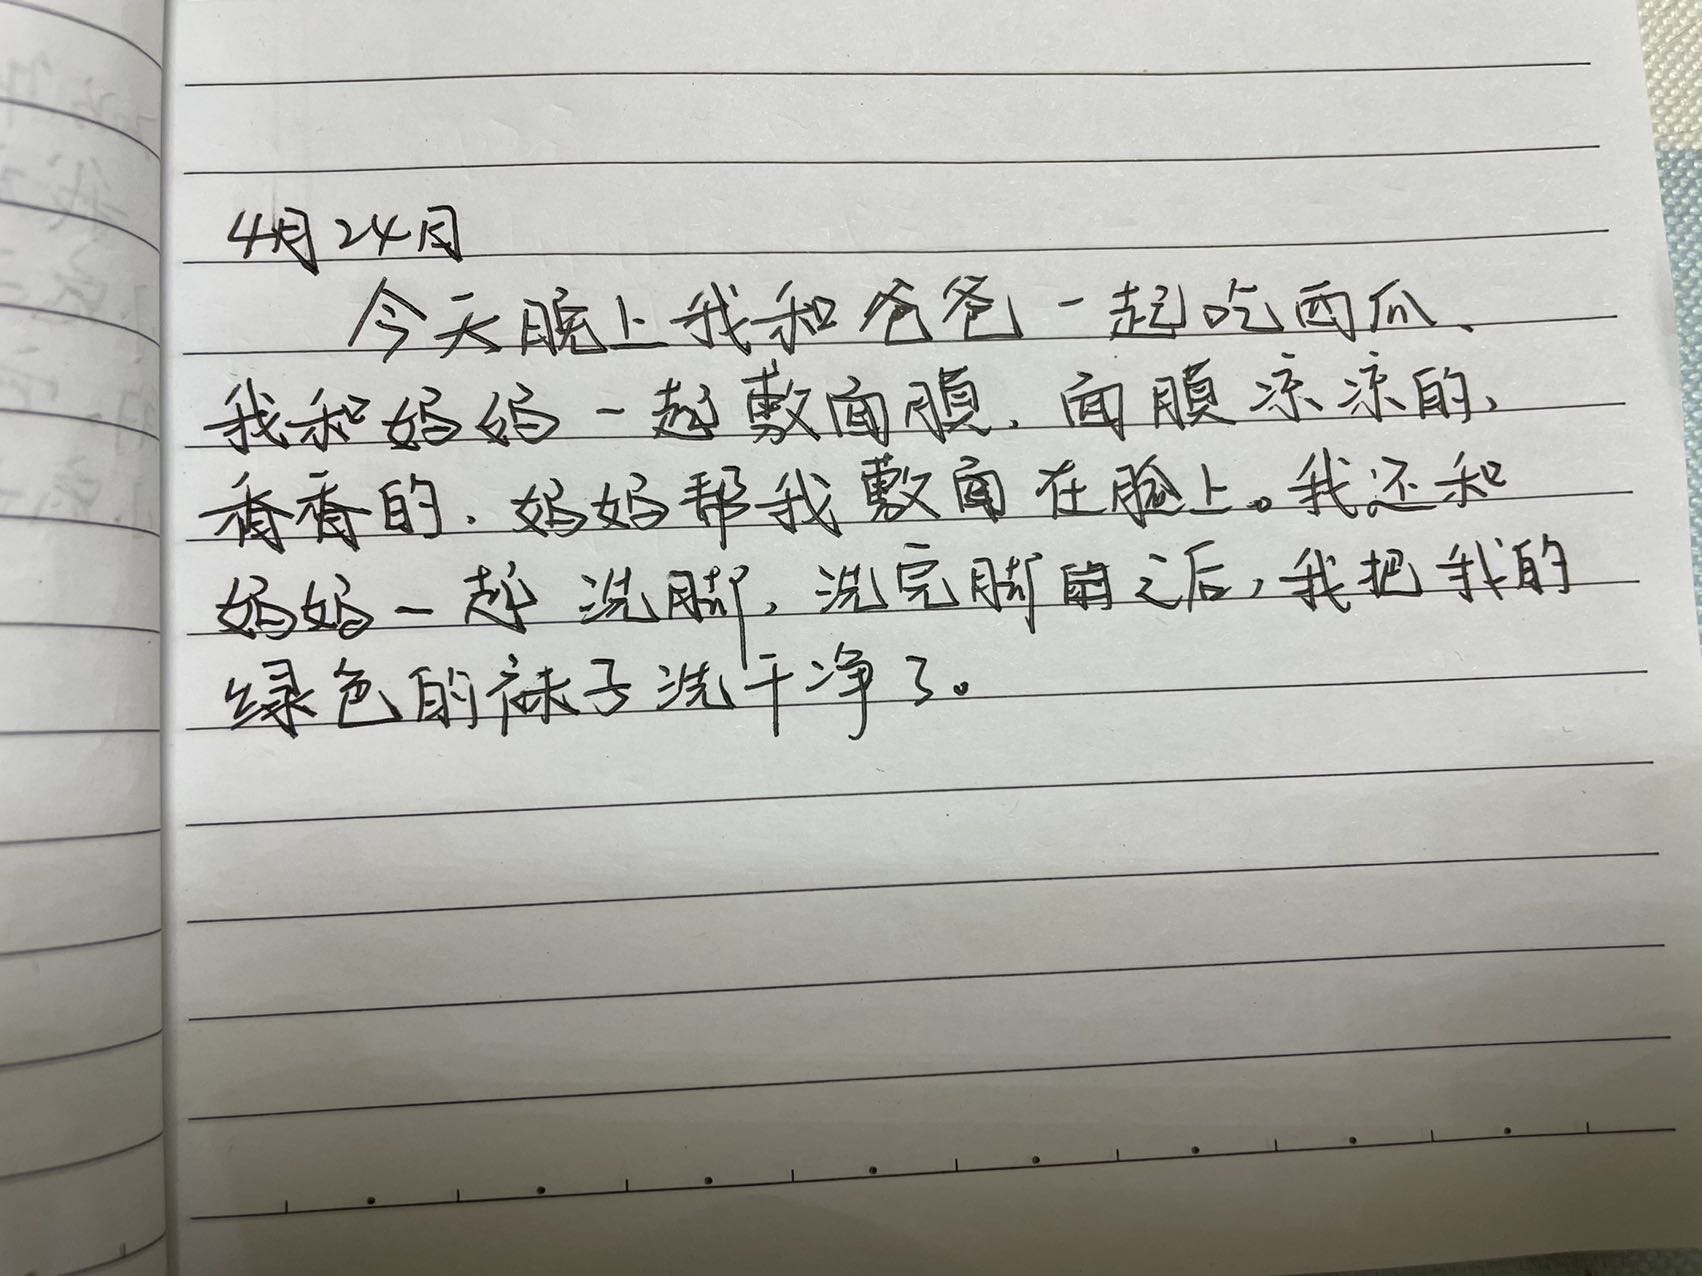 4月24日
今天晚上我和爸爸一起吃西瓜、
我和妈妈一起敷面膜，面膜凉凉的、
香香的，妈妈帮我敷面在脸上。我还和
妈妈一起洗脚，洗完脚之后，我把我的
绿色的袜子洗干净了。